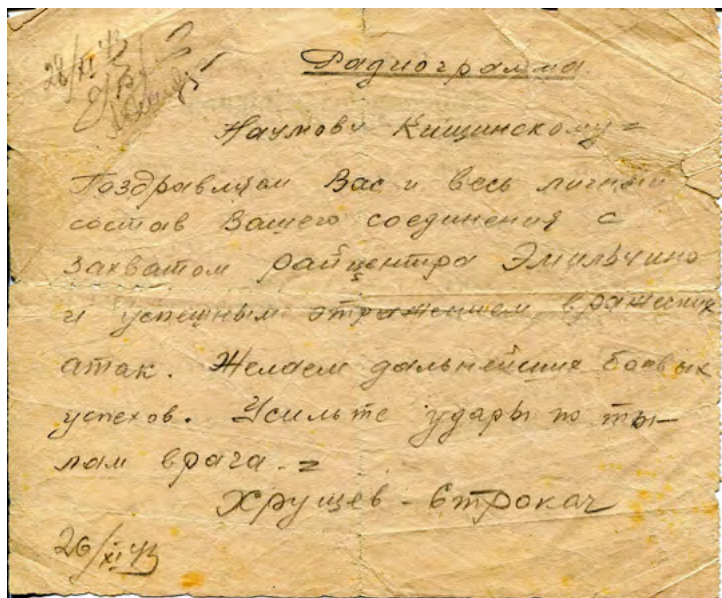 28/XI 43
Радиограмма
Наумову Кищинскому =
Поздравляем Вас и весь личный
состав Вашего соединения с
захватом райцентра Эмильчино
и успешным отражением вражеских
атак. Желаем дальнейших боевых
успехов. Усильте удары по ты-
лам врага. =
Хрущев - Строкач
26/XI 43